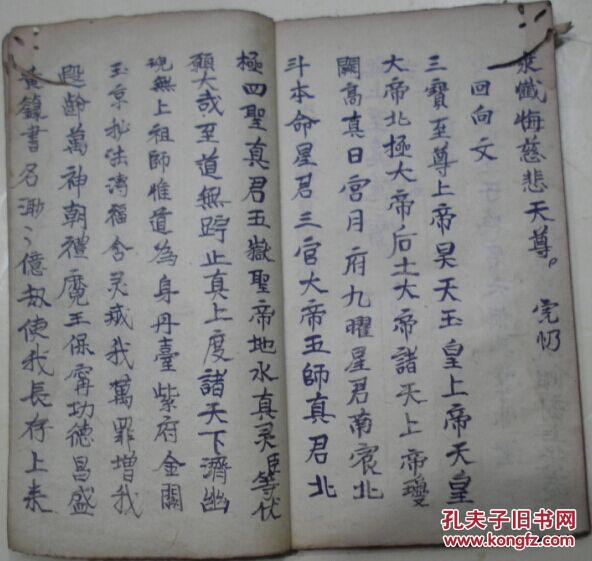 衆懺悔慈悲天尊。 完
回向文
三寳至尊上帝昊天玉皇上帝天皇
大帝北極大帝后土大帝諸天上帝瓊
闕高真日宮月府九曜星君南宸北
斗本命星君三官大帝五師真君北
極四聖真君五嶽聖帝地水真灵臣等伏
願大哉至道無踭止真上度諸天下濟幽
現無上祖師惟道為身丹臺紫府金闕
玉京 法溥福含灵 我萬罪增我
遐齡萬神朝禮魔王保甯功德昌盛
黃籙書名 〻億劫使我長存上来
孔夫子旧书网
www.kongfz.com